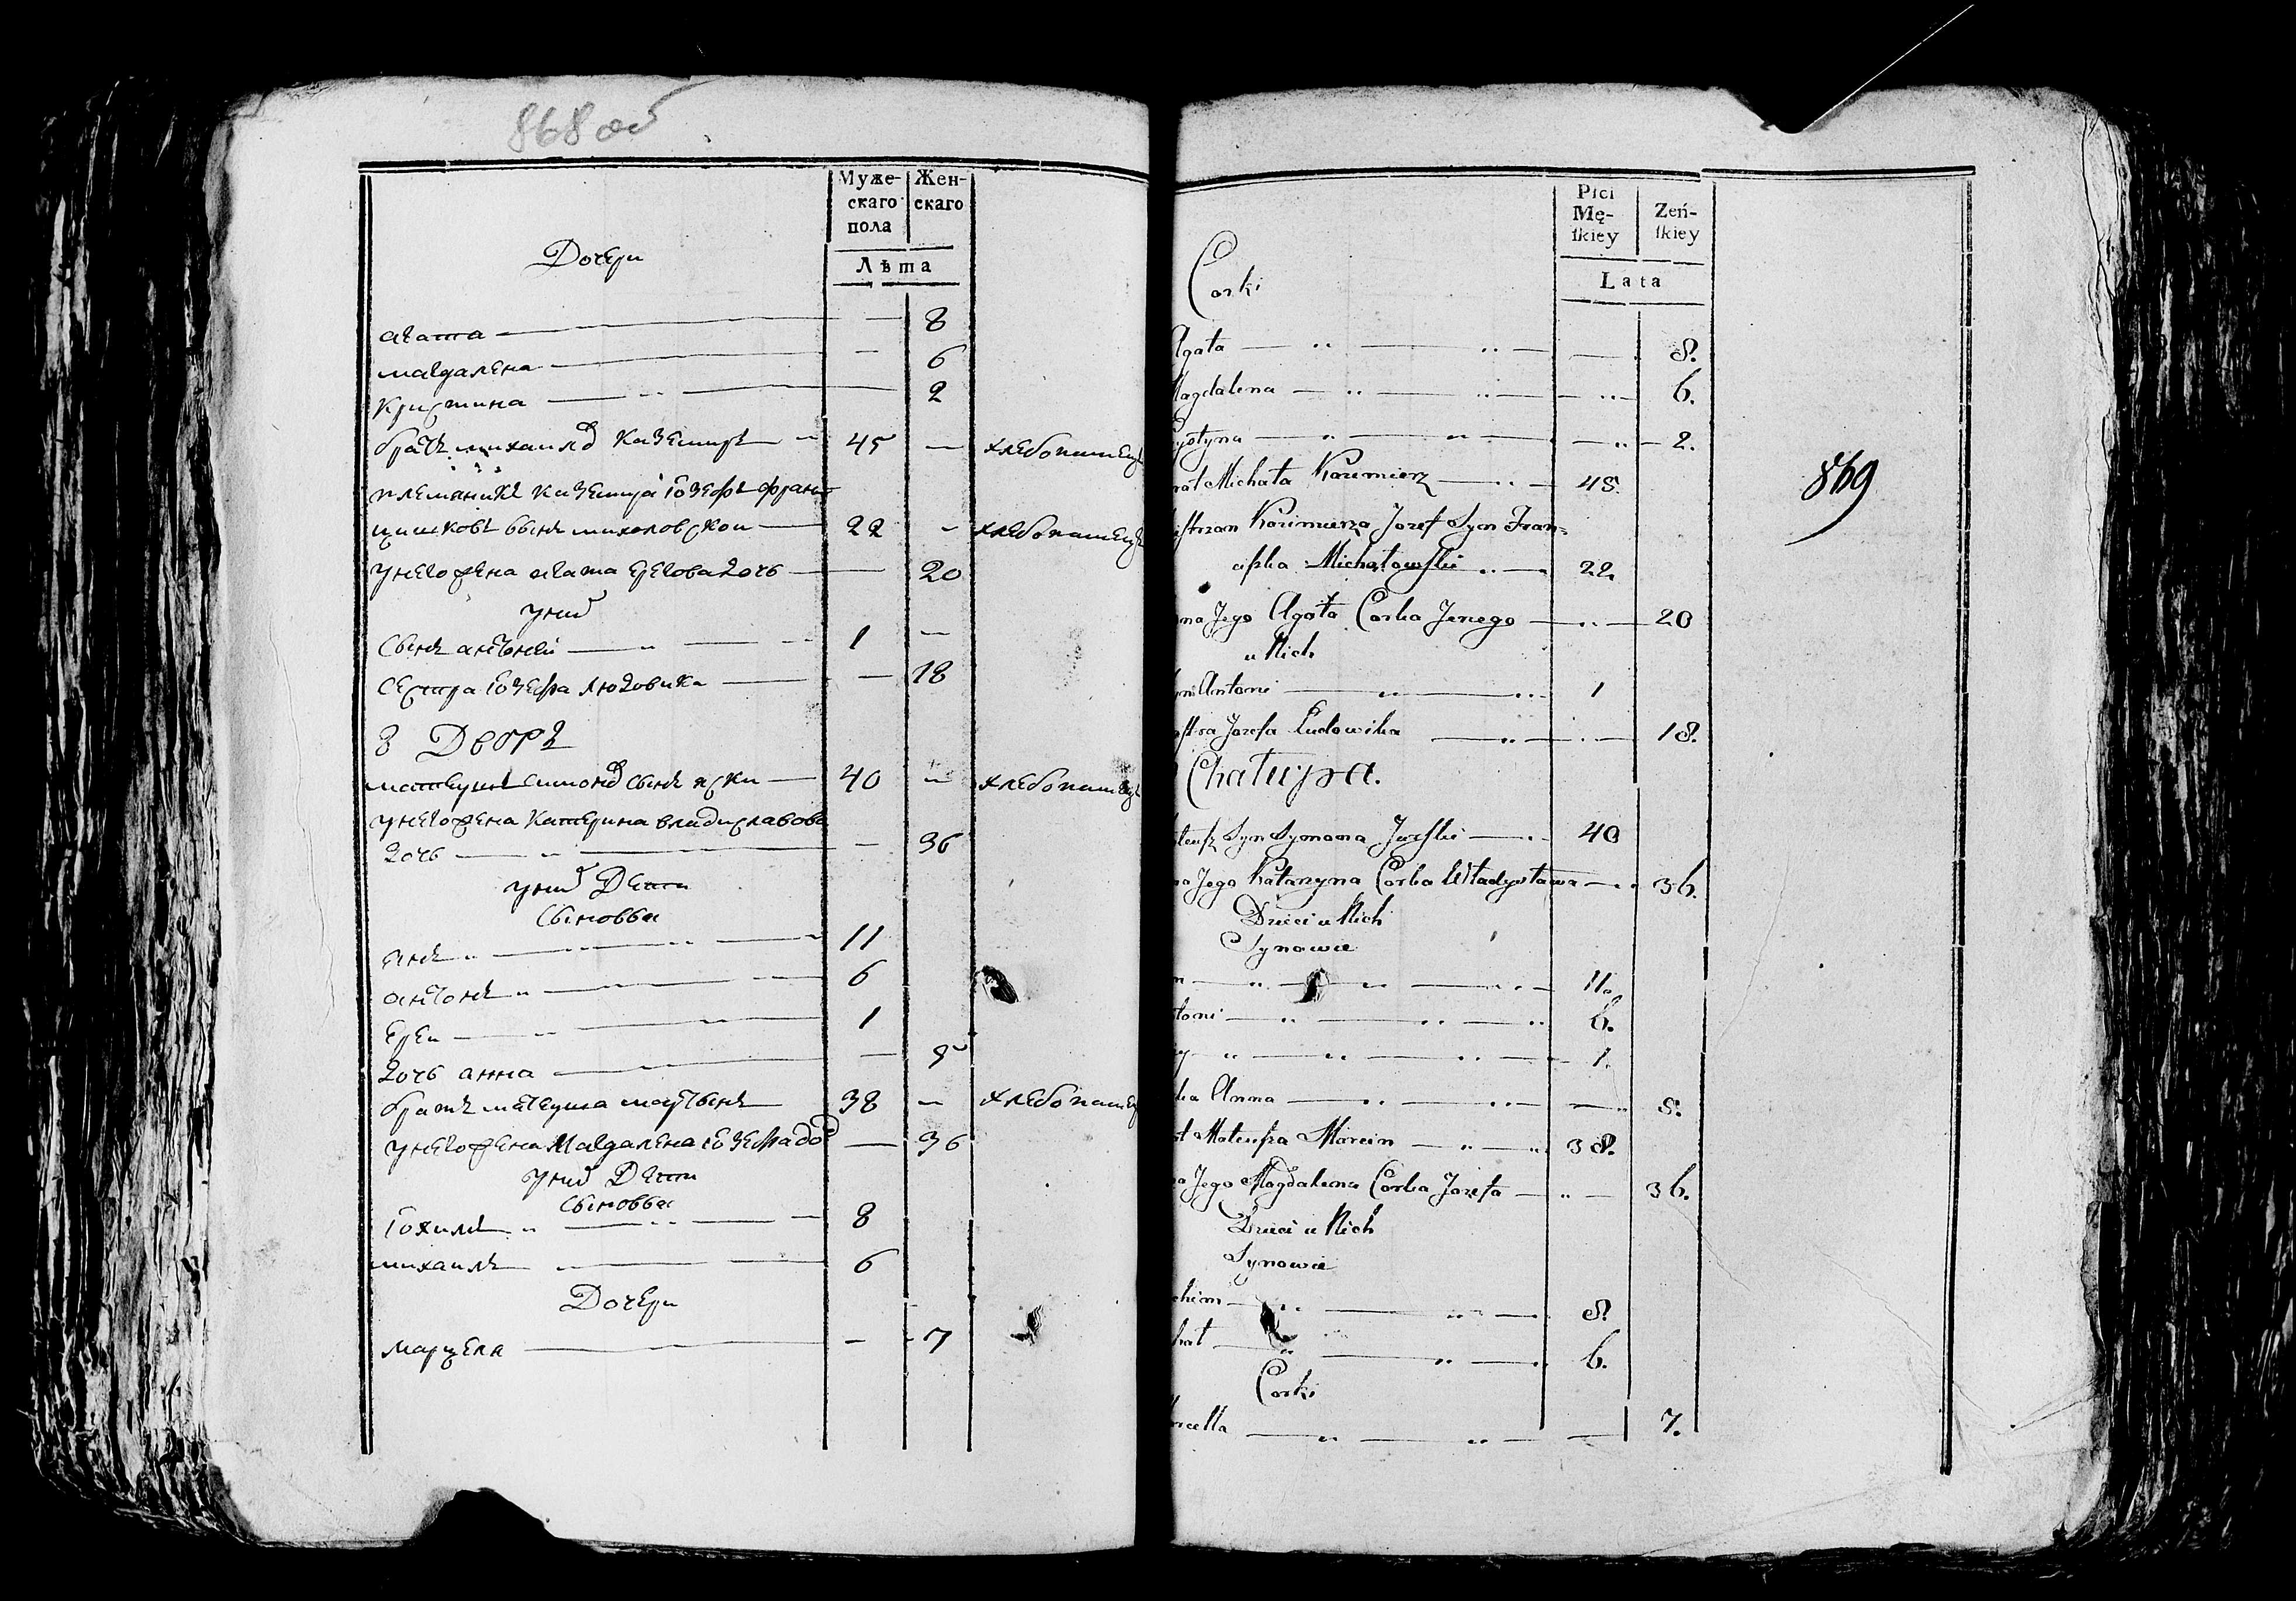 868 об
Муже-
скаго
пола
Жен-
скаго
Лѣта
Дочери
агата — 8
магдалена — 6
Кристина — 2
братъ михаила Каземиръ — 45 — хлебопашецъ
племяникъ Каземира Іозефъ Фран
цишковъ сынъ михаловскои — 22 — хлебопашецъ
унего жена агата Ерегова дочь — 20
униⷯ
Сынъ антоней — 1 —
Сестра Іозефа Людовика — 18
3 Дворъ
матеушъ Симона сынъ яски — 40 — хлебопашецъ
унего жена Катерина владиславова
дочь — 36
униⷯ Дети
Сыновья
янъ — 11
антонъ — 6
Ереи — 1
дочь анна — 5
братъ матеуша мартынъ 38 — хлебопашец
унего жена Магдалена Іозефа до — 36
униⷯ Дети
Сыновья
Іохимъ — 8
михаилъ — 6
Дочери
марцела — 7
Płci
Mę-
ſkiey
Zeń-
ſkiey
Lata
869
Corki
Agata — 8.
Magdalena — 6.
ystyna — 2.
rat Michała Kazimierz — 45.
istrzan Kazimierza Jozef Syn Fran=
ciſzka Michałowſki — 22.
na Jego Agata Corka Jerzego — 20
u Nich
yn Antoni — 1
oſtra Jozefa Ludowika — 18.
Chałupa.
teuſz Syn Symona Jaſſki — 40
a Jego Katarzyna Corka Władysława — 36.
Dzieci u Nich
Synowie
n — 11.
toni — 6.
y — 1.
ka Anna — 5.
t Mateuſza Marcin — 38.
a Jego Magdalena Corka Jozefa — 36.
Dzieci u Nich
Synowie
chim — 8.
hał — 6.
Corki
arcella — 7.